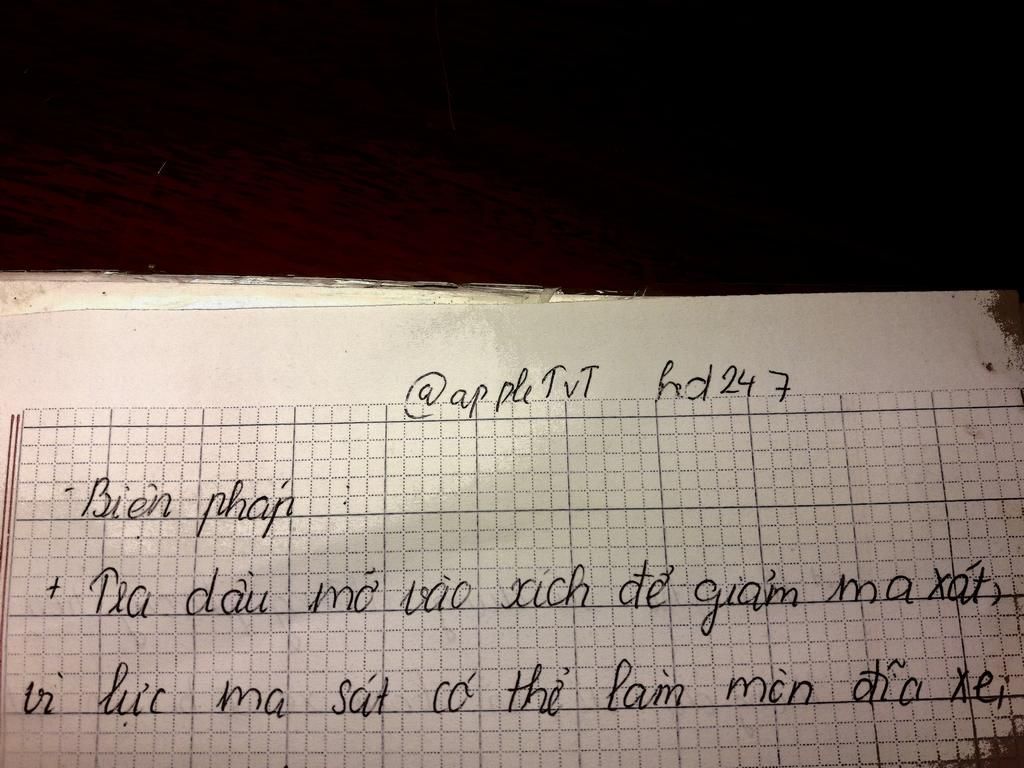 @appleTvT hd247
- Biện pháp :
+ Tra dầu mở vào xích để giảm ma xát,
vì lực ma sát có thể làm mòn đĩa xe,